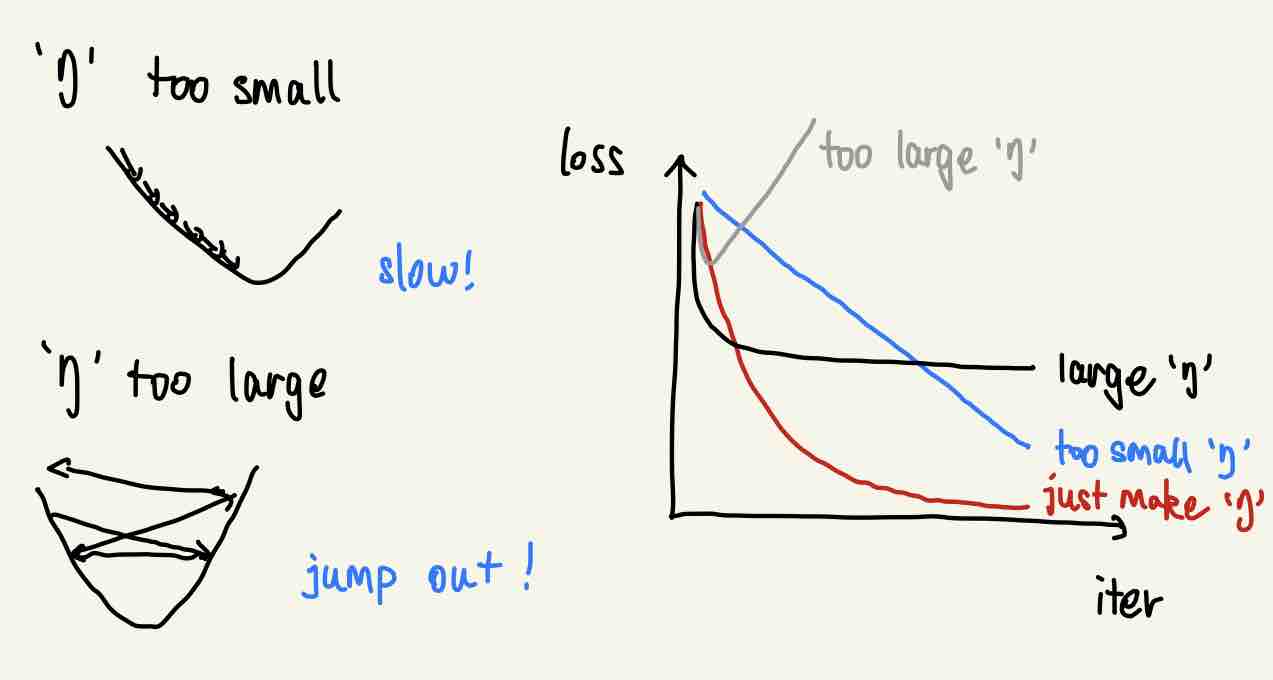 'η' too small
slow!
'η' too large
jump out !
loss
too large 'η'
large 'η'
too small 'η'
just make 'η'
iter